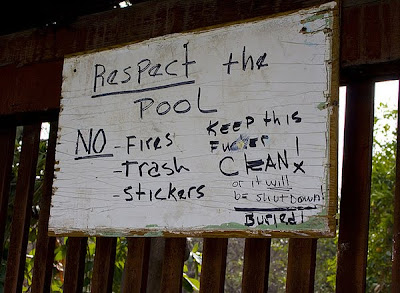 Respect the
POOL
NO - Fires
- Trash
- Stickers
Keep this
Fucker !
CLEAN x
or it will
be shut down!
Buried!